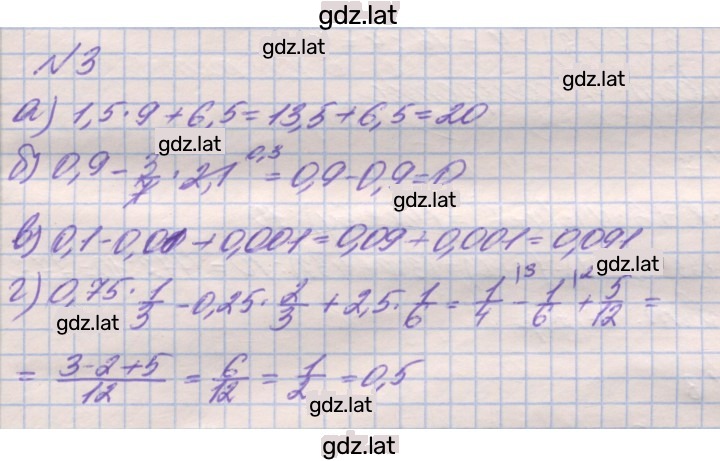 gdz.lat
gdz.lat
№3
gdz.lat
а) 1,5·9+6,5=13,5+6,5=20
gdz.lat
б) 0,9 - 3/7 · 2,1 ^0,3 = 0,9-0,9=0
gdz.lat
в) 0,1-0,01+0,001=0,09+0,001=0,091
gdz.lat
г) 0,75 · 1/3 - 0,25 · 2/3 + 2,5 · 1/6 = 1/4 |3 - 1/6 |2 + 5/12 =
gdz.lat
= 3-2+5/12 = 6/12 = 1/2 = 0,5
gdz.lat
gdz.lat